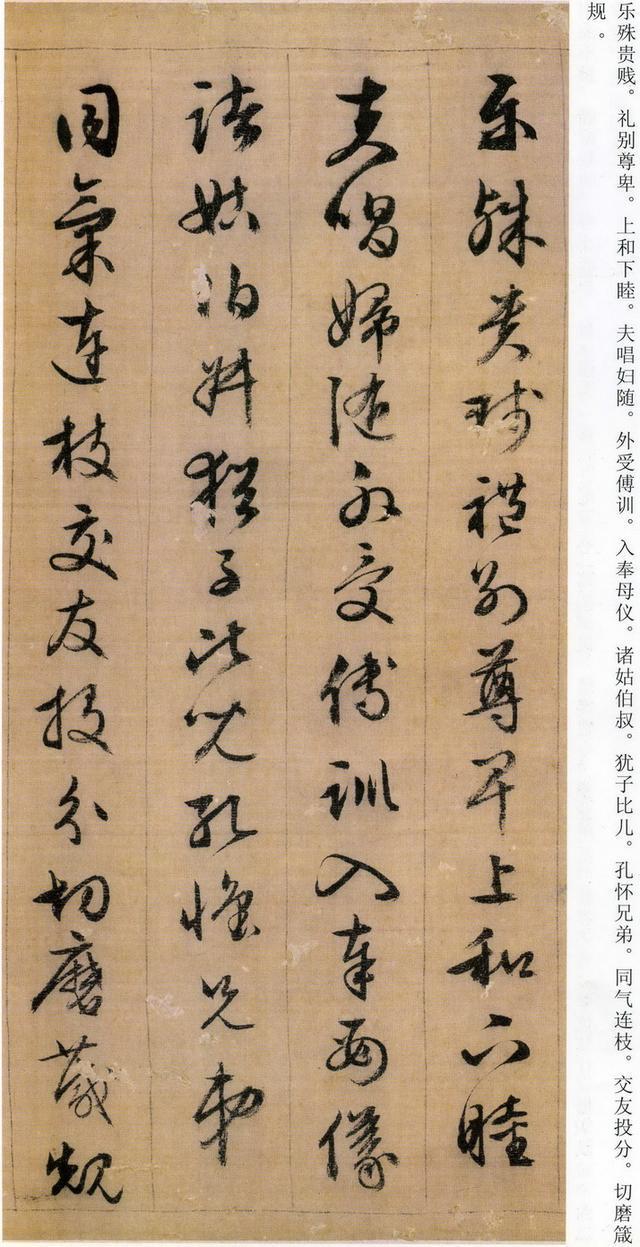 乐殊贵贱。礼别尊卑。上和下睦。夫唱妇随。外受傅训。入奉母仪。诸姑伯叔。犹子比儿。孔怀兄弟。同气连枝。交友投分。切磨箴
规。
乐殊贵贱礼别尊卑上和下睦
夫唱婦随外受傅訓入奉母儀
諸姑伯叔猶子比兒孔懷兄弟
同氣連枝交友投分切磨箴規